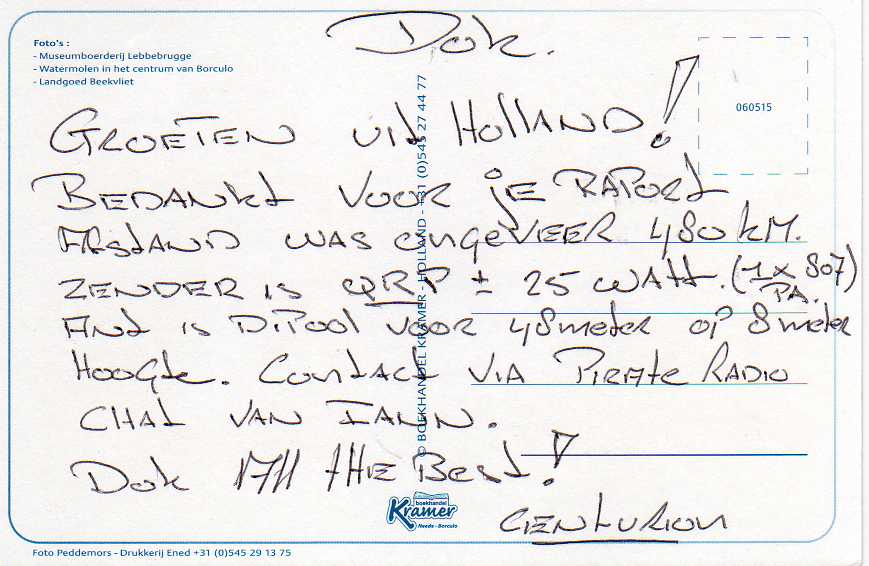 Dok.
Foto's :
- Museumboerderij Lebbebrugge
- Watermolen in het centrum van Borculo
- Landgoed Beekvliet
060515
GROETEN uit HOLLAND!
BEDANKt VOOR je RAPORt
AFSTAND WAS ongeVEER 480 KM.
ZENDER is QRP ± 25 WAtt. (1x 807)
PA.
Ant is DiPool voor 48meter op 8meter
Hoogte. Contact VIA PiRAte RADIO
CHAt VAN IANN.
Dok 1711 tHE Best!
CENtURION
© BOEKHANDEL KRAMER - HOLLAND - +31 (0)545 27 44 77
boekhandel
Kramer
Neede - Borculo
Foto Peddemors - Drukkerij Ened +31 (0)545 29 13 75